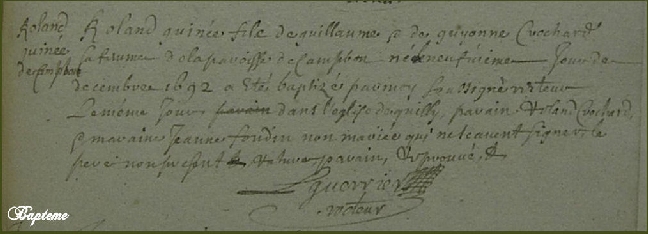 Roland
quinée
de Campbon
Roland quinée fils de guillaume & de guyonne Cochard
sa femme de la paroisse de Campbon né le neufvieme Jour de
decembre 1692 a eté baptizé par moy soussigné recteur
Le méme Jour parain dans l'eglise de quilly, parain Roland Cochard,
& maraine Jeanne foudin non mariée qui ne scavent signer le
pere non present parain, & approuvé, &
Lguerrier
recteur
Bapteme